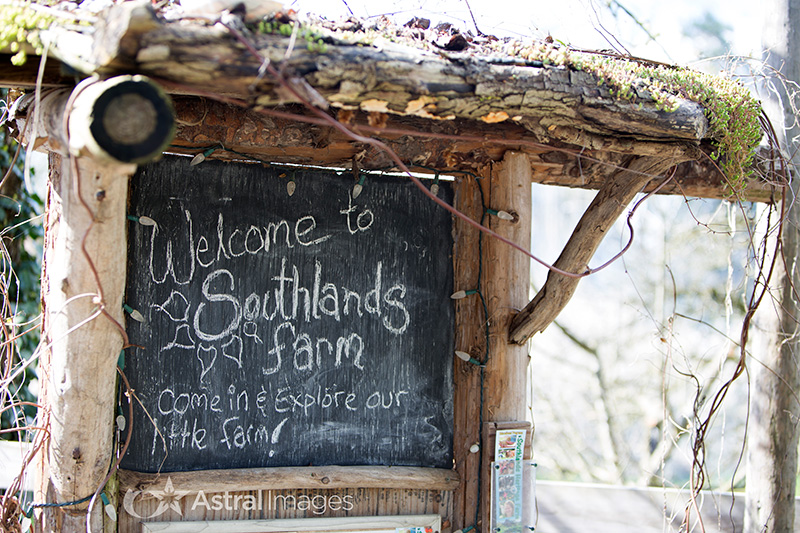 Welcome to
Southlands
farm
Come in & Explore our
little farm!
Astral Images